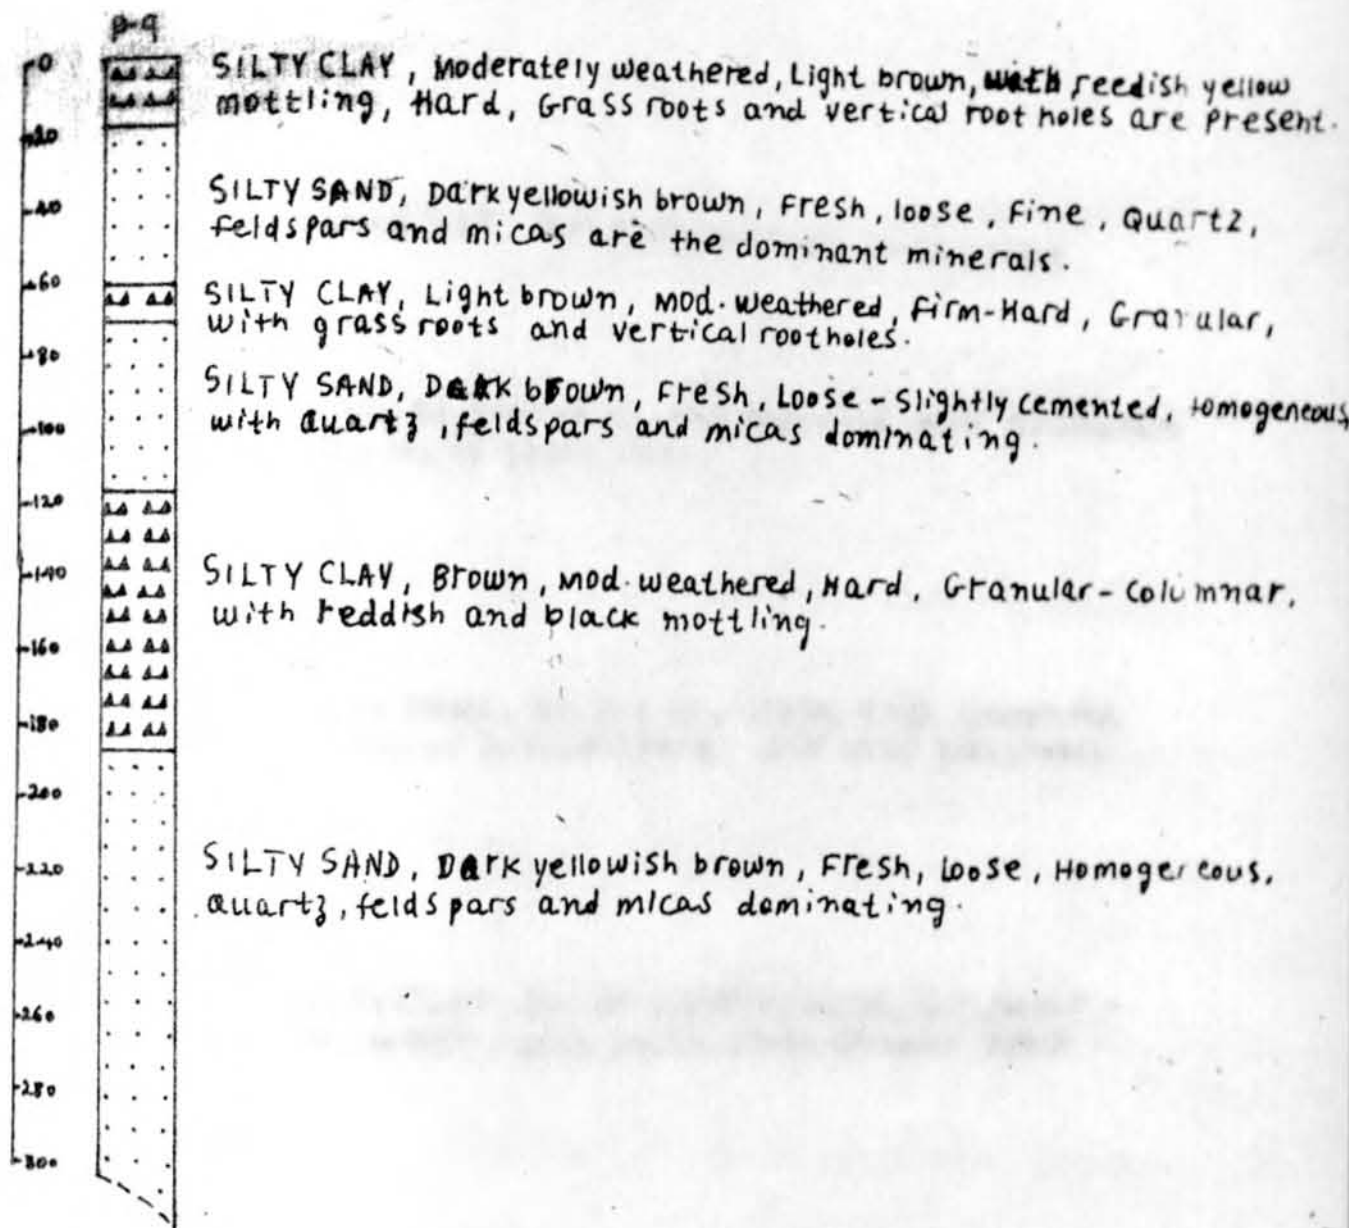 P-9
0
SILTY CLAY, Moderately weathered, Light brown, with reedish yellow
mottling, Hard, Grass roots and vertical root holes are present.
20
40
SILTY SAND, Dark yellowish brown, Fresh, loose, Fine, Quartz,
feldspars and micas are the dominant minerals.
60
SILTY CLAY, Light brown, mod. weathered, Firm-Hard, Granular,
with grass roots and vertical rootholes.
80
SILTY SAND, Dark brown, Fresh, Loose - Slightly cemented, Homogeneous,
with quartz, feldspars and micas dominating.
100
120
140
SILTY CLAY, Brown, mod. weathered, Hard, Granular - Columnar,
with reddish and black mottling.
160
180
200
220
SILTY SAND, Dark yellowish brown, Fresh, loose, Homogeneous,
quartz, feldspars and micas dominating.
240
260
280
300